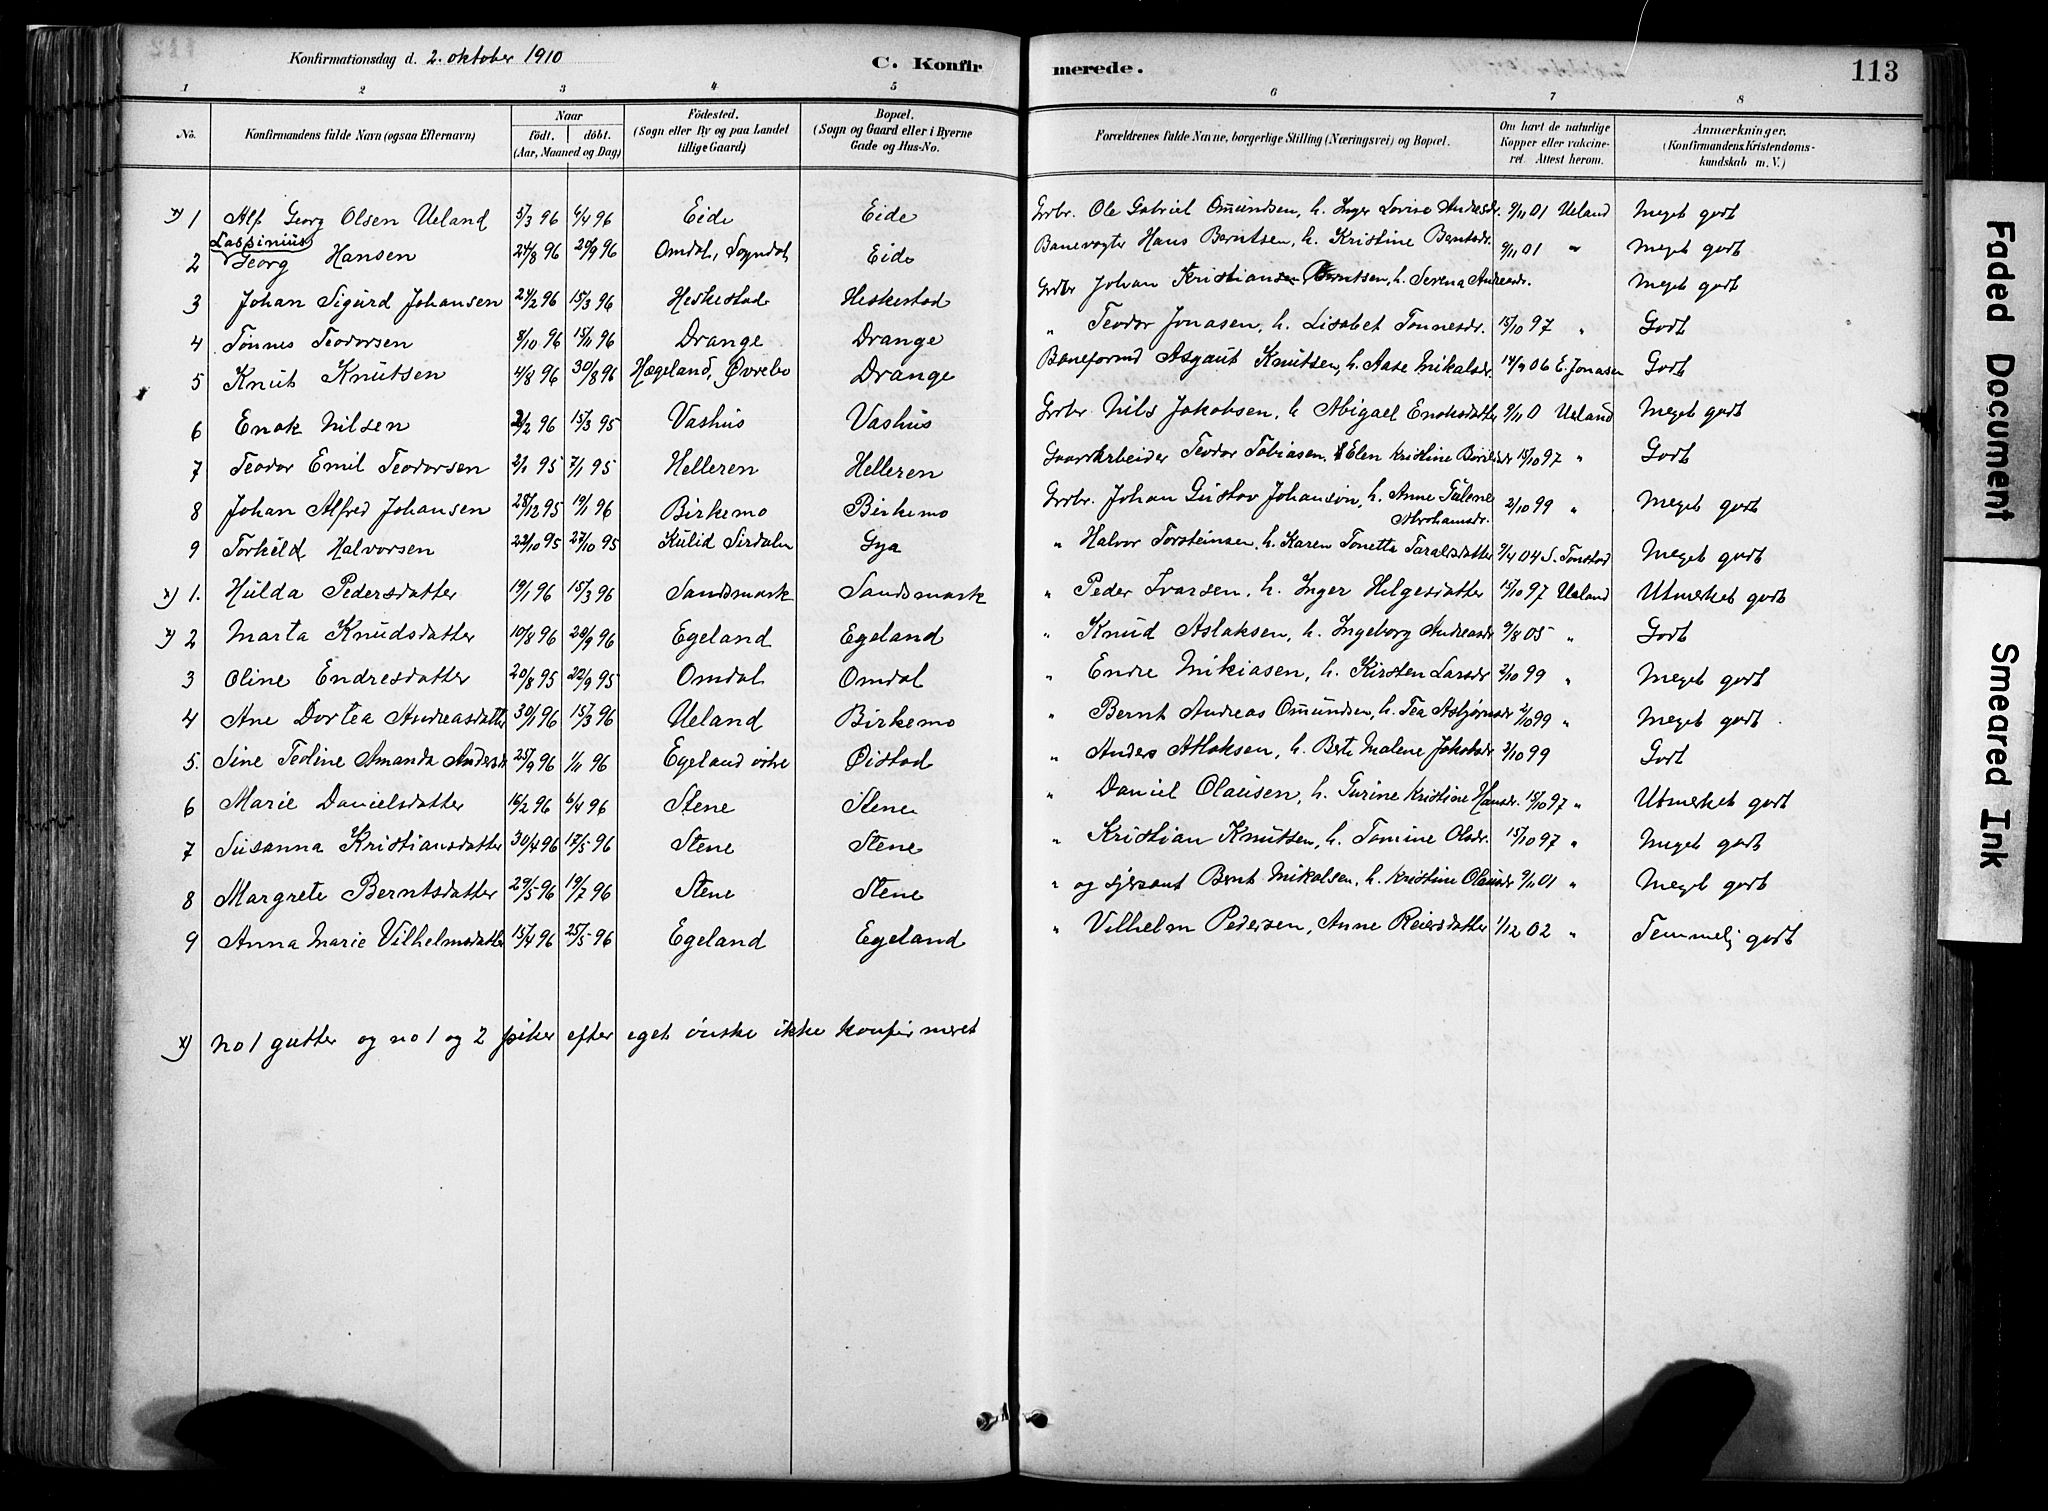 Konfirmationsdag d. 2. oktober 1910
C. Konfirmerede.
113
1 2 3 4 5 6 7 8
No. Konfirmandens fulde Navn (ogsaa Efternavn) Naar födt. döbt. (Aar, Maaned og Dag) Födested. (Sogn eller By og paa Landet tillige Gaard) Bopæl. (Sogn og Gaard eller i Byerne Gade og Hus-No. Forældrenes fulde Navne, borgerlige Stilling (Næringsvei) og Bopæl. Om havt de naturlige Kopper eller vakcineret. Attest herom. Anmærkninger. (Konfirmandens Kristendomskundskab m. V.)
x) 1 Alf Georg Olsen Ueland 5/3 96 6/4 96 Eide Eide Grbr. Ole Gabriel Omundsen, h. Inger Lovise Andreasdr. 9/11 01 Ueland Meget godt
2 Lassinius Georg Hansen 24/8 96 20/9 96 Omdal, Sogndal Eide Banevogter Hans Berntsen, h. Kristine Berntsdr. 9/11 01 " Meget godt
3 Johan Sigurd Johansen 24/2 96 15/3 96 Heskestad Heskestad Grbr Johan Kristiansen Berntsen, h. Serena Andreasdr. Meget godt
4 Tönnes Teodorsen 8/10 96 15/11 96 Drange Drange " Teodor Jonasen, h. Lisabet Tonnesdr. 15/10 97 " Godt
5 Knut Knutsen 4/8 96 30/8 96 Hægeland, Øvrebø Drange Baneformd Asgaut Knutsen, h. Aase Mikalsdr. 14/9 06 E. Jonasen Godt
6 Enok Nilsen 2/2 96 15/3 95 Vashus Vashus Grbr Nils Jakobsen, h Abigael Enoksdatter 9/11 0 Ueland Meget godt
7 Teodor Emil Teodorsen 2/1 95 7/1 95 Helleren Helleren Gaardarbeider Teodor Tobiasen, Elen Kristine 15/10 97 " Godt
8 Johan Alfred Johansen 28/12 95 19/1 96 Birkemo Birkemo Grbr. Johan Gustav Johanson, h. Anne Talene Abrahamsdr. 2/10 99 " Meget godt
9 Torkild Halvorsen 22/10 95 27/10 95 Kulid Sirdalen Gya " Halvor Torsteinsen, h. Karen Tonetta Taraldsdatter 9/4 04 S. Tonstad Meget godt
x) 1. Hulda Pedersdatter 19/1 96 15/3 96 Sandsmark Sandsmark " Peder Ivarsen, h. Inger Helgesdatter 15/10 97 Ueland Utmerket godt
x) 2 Marta Knudsdatter 10/8 96 20/9 96 Egeland Egeland " Knud Aslaksen, h. Ingeborg Andreasdr 9/8 05 " Godt
3 Oline Endresdatter 20/8 95 22/9 95 Omdal Omdal " Endre Mikiasen, h. Kirsten Larsdr 2/10 99 " Meget godt
4 Ane Dortea Andreasdatter 30/1 96 15/3 96 Ueland Birkemo " Bernt Andreas Omundsen, h. Tea Asbjørnsdr 2/10 99 " Meget godt
5. Sine Teoline Amanda Andersdtr 25/9 96 1/11 96 Egeland östre Øistad " Anders Atlaksen, h. Berte Malene Jakobsdr 2/10 99 Godt
6 Marie Danielsdatter 16/2 96 6/4 96 Stene Stene " Daniel Olausen, h. Turine Kristine Hansdr. 15/10 97 " Utmerket godt
7 Susanna Kristiansdatter 30/4 96 17/5 96 Stene Stene " Kristian Knutsen, h. Tomine Olsdr. 15/10 97 " Meget godt
8 Margrete Berntsdatter 29/5 96 19/7 96 Stene Stene " og sjersant Bernt Mikalsen, h. Kristine Olausdr 9/11 01 " Meget godt
9 Anna Marie Vilhelmsdatter 15/4 96 25/5 96 Egeland Egeland " Vilhelm Pedersen, Anne Reiersdatter 1/12 02 " Temmelig godt
x) no 1 gutter og no 1 og 2 piker efter eget önske ikke konfirmeret
Faded Document
Smeared Ink